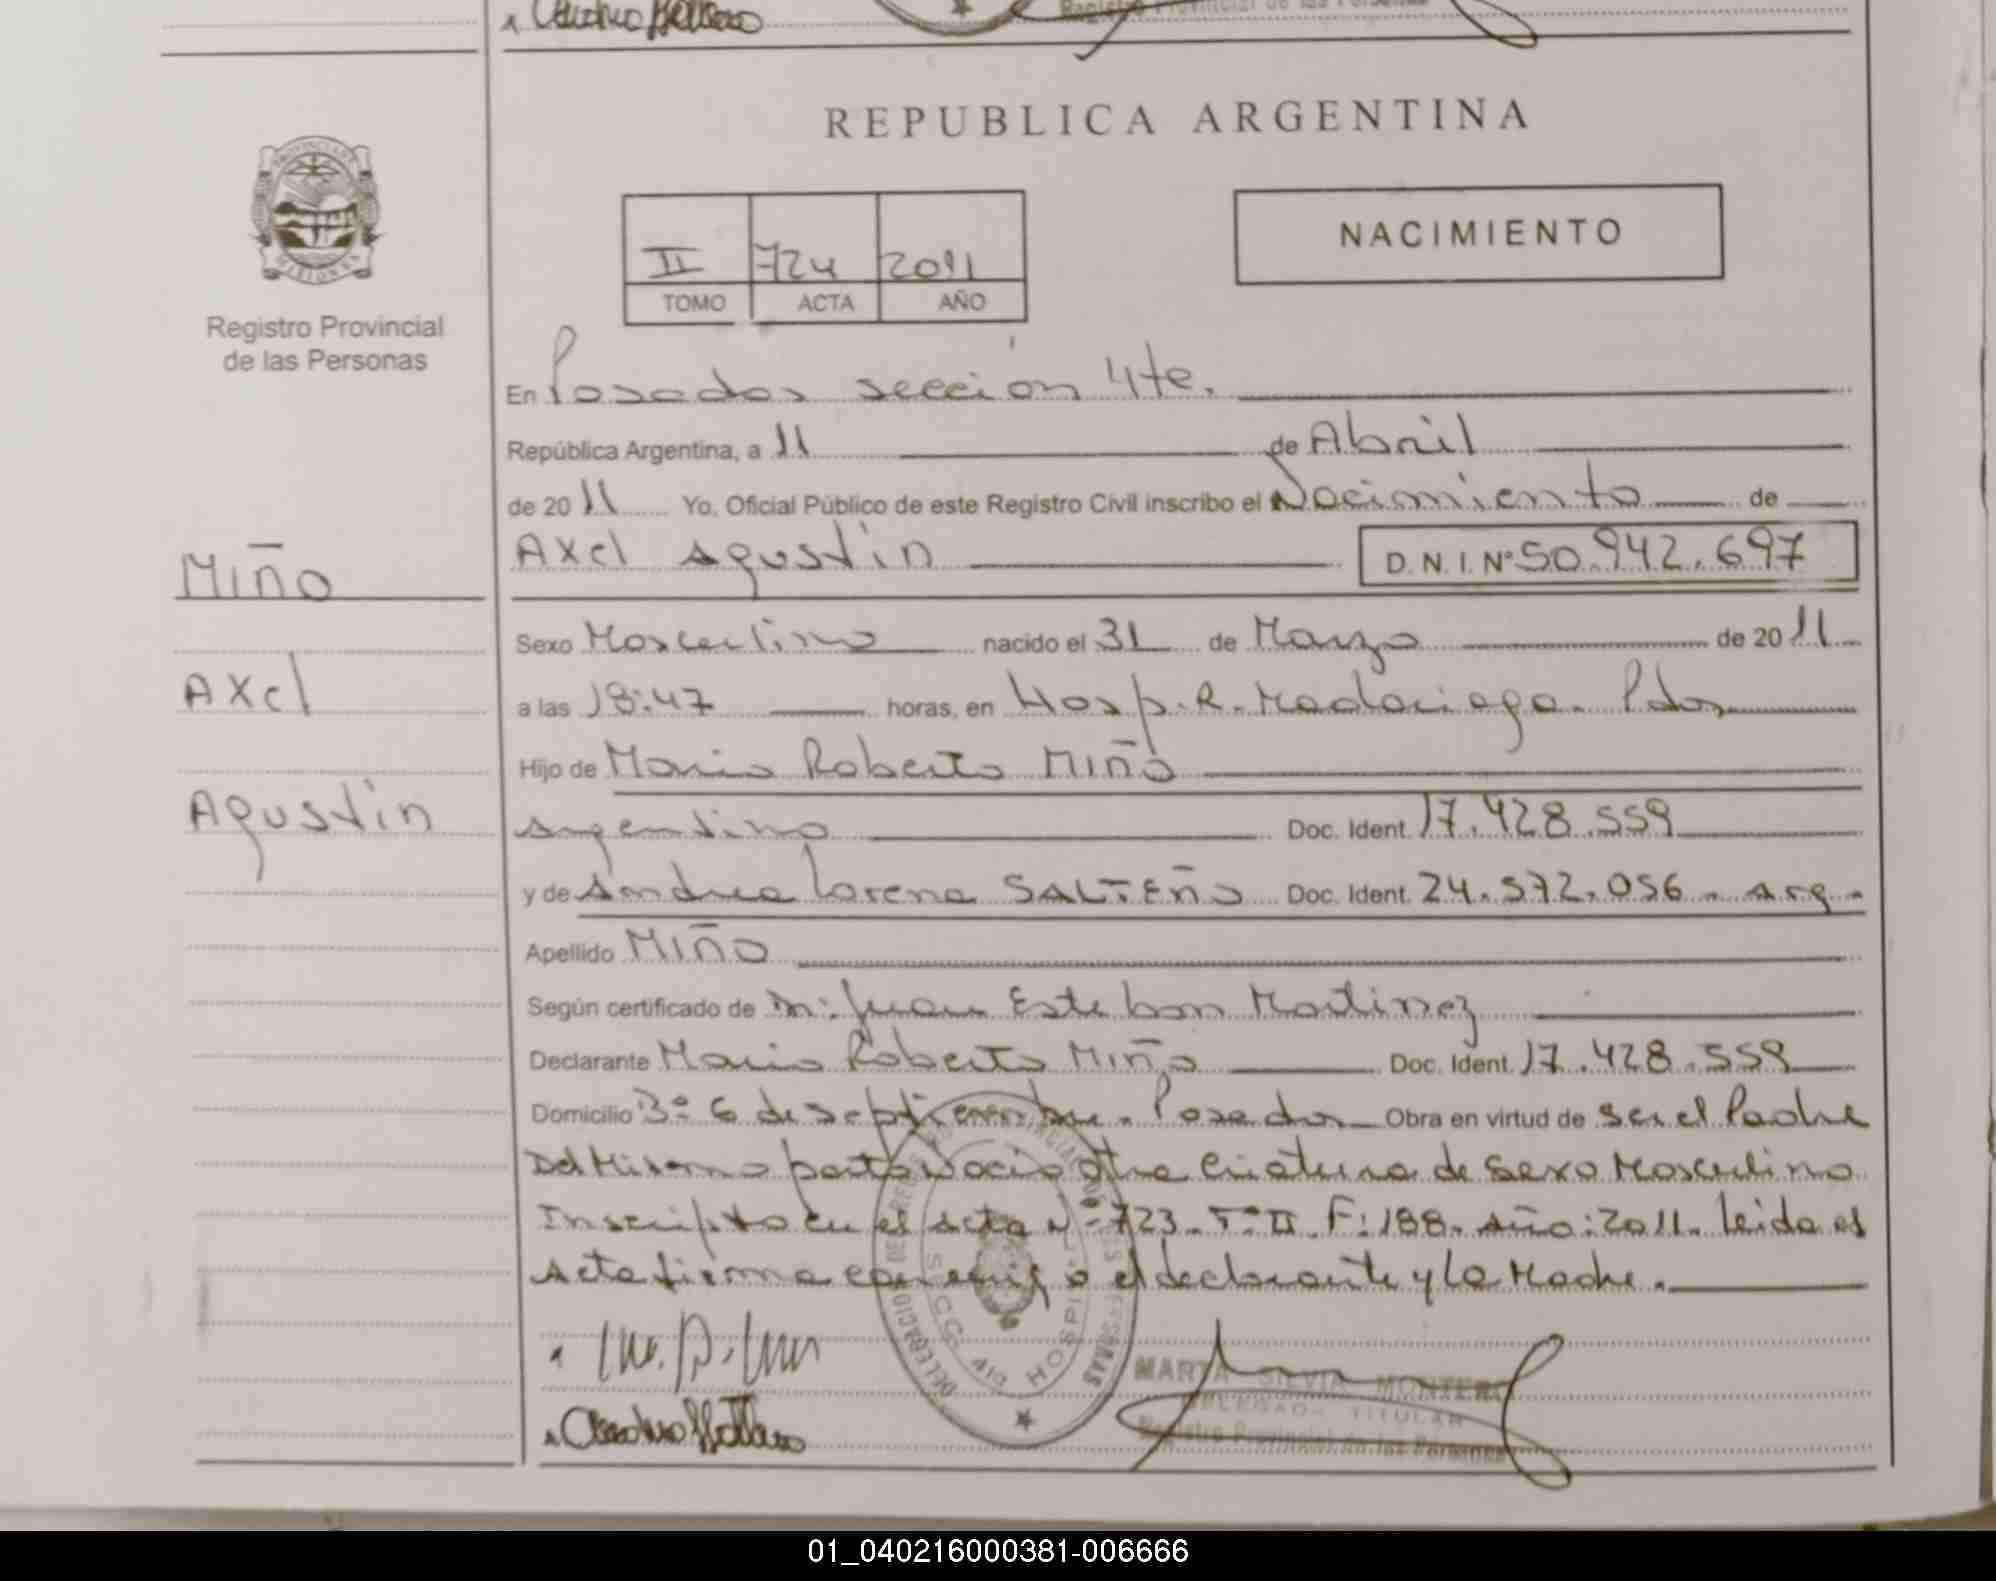 REPUBLICA ARGENTINA
PROVINCIA DE MISIONES
Registro Provincial
de las Personas
II 724 2011
TOMO ACTA AÑO
NACIMIENTO
En Posadas sección 4te.
República Argentina, a 11 de Abril
de 2011 Yo, Oficial Público de este Registro Civil inscribo el Nacimiento de
Miño
Axel Agustin D. N. I. Nº 50.942.697
Sexo Masculino nacido el 31 de Marzo de 2011
Axel
a las 18:47 horas, en Hosp. R. Madariaga. Pdas
Hijo de Mario Roberto Miño
Agustin
Argentino Doc. Ident. 17.428.559
y de Andrea Lorena SALTEÑO Doc. Ident. 24.572.056 - Arg.
Apellido Miño
Según certificado de Juan Esteban Martinez
Declarante Mario Roberto Miño Doc. Ident. 17.428.559
Domicilio Bº 6 de Septiembre. Posadas Obra en virtud de ser el Padre
Del Mismo parto nacio otra Criatura de Sexo Masculino
Inscripto en el Acta Nº 723. Tº II F: 188. Año: 2011. Leida el
Acta firma conmigo el declarante y La Madre.
DELEGACION SECC 4ta HOSPI
MARTA SILVIA MONTERO
DELEGADA TITULAR
Registro Provincial de las Personas
01_040216000381-006666